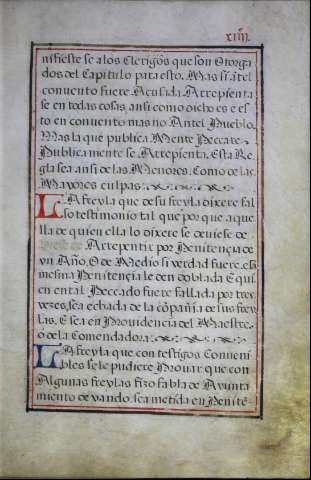 xiiij.
nifieste se a los Clerigos que son Otorga
dos del Capitulo para esto. Mas si ātel
convento fuere Acusada Arrepienta
se en todas cosas ansi como dicho es e es
to en convento mas no Antel Pueblo.
Mas la que publica Mente Peccare
Publicamente se Arrepienta. Esta Re
gla sea ansi de las Menores. Como de las
Mayores culpas.
LA freyla que de su freyla dixere fal
so testimonio tal que por que aque
lla de quien ella lo dixere se deviese de
Arrepentir por Penitencia de
vn Año. O de Medio si verdad fuere. esa
mesma Penitencia le den doblada E qui
en en tal Peccado fuere fallada por tres
vezes, sea echada de la cōpañia de sus frey
las. E sea en Providencia del Maestre.
o de la Comendadora.
LA freyla que con testigos Conveni
bles se le pudiere Provar que con
Algunas freylas fizo fabla de Ayunta
miento de vando. sea metida en Penitē-